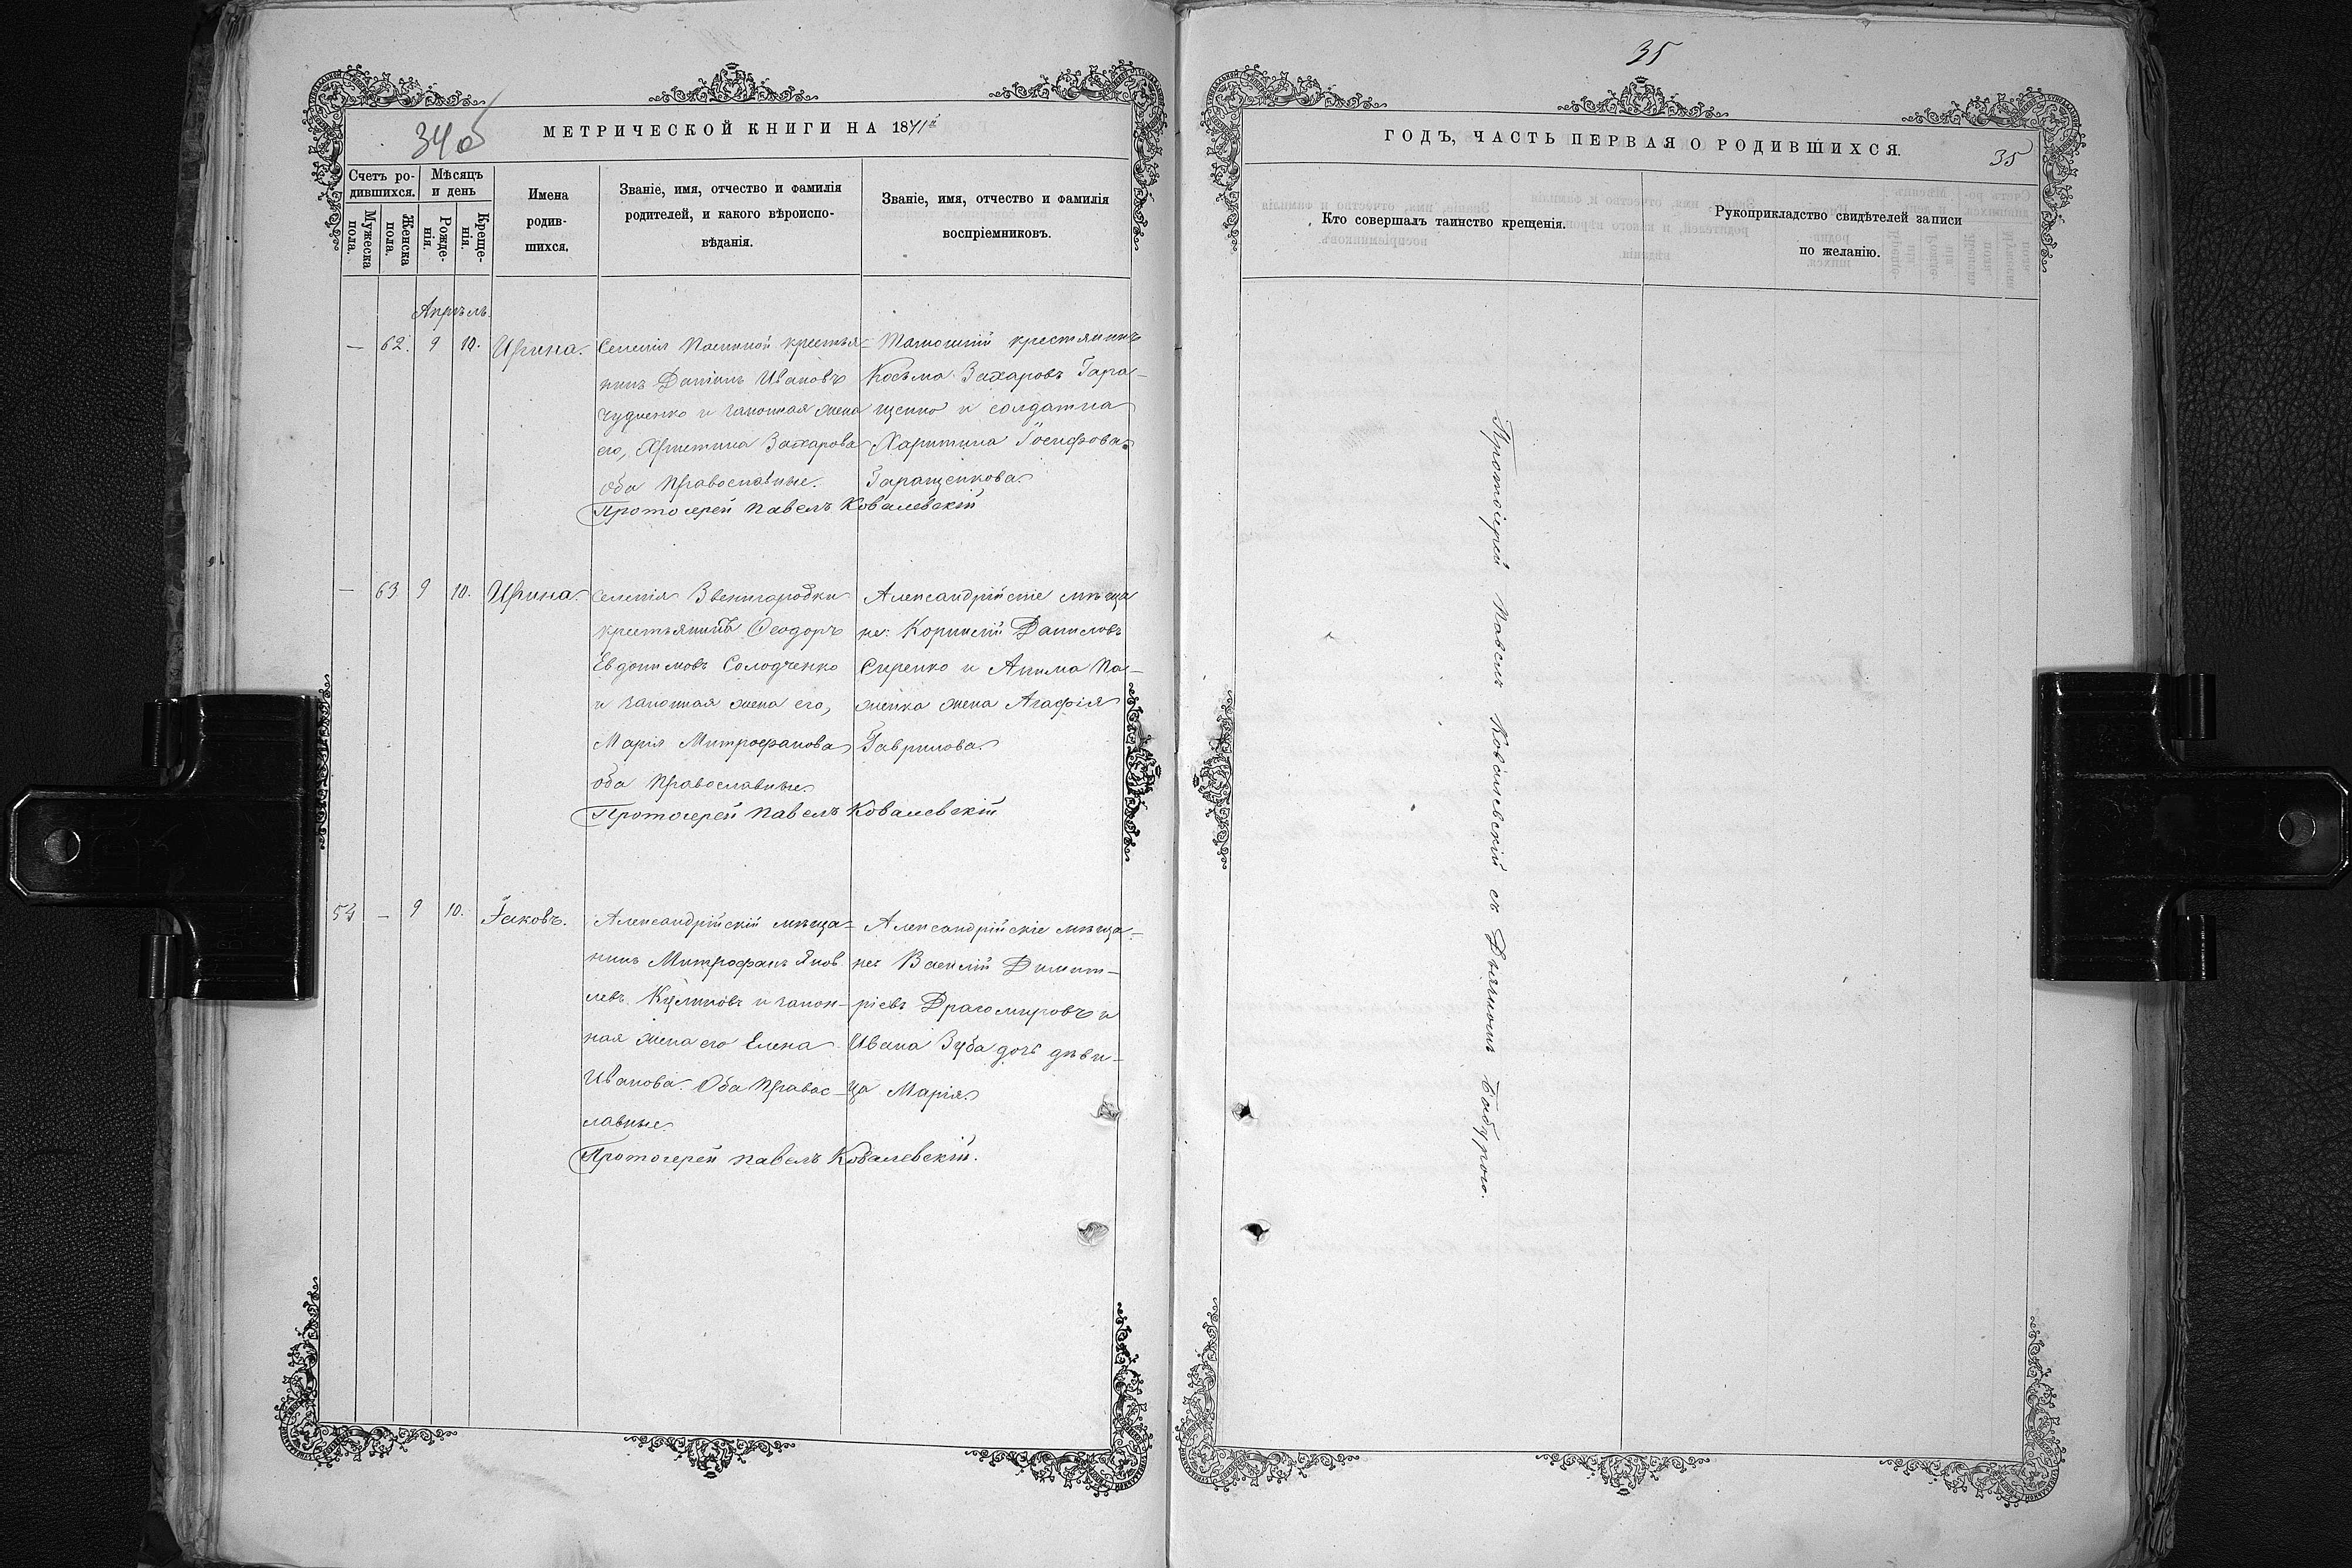 34об
МЕТРИЧЕСКОЙ КНИГИ НА 1871й
Счетъ ро-
дившихся.
Мужеска
пола.
Женска
пола.
Мѣсяцъ
и день
Рожде-
нія.
Креще-
нія.
Имена
родив-
шихся.
Званіе, имя, отчество и фамилія
родителей, и какого вѣроиспо-
вѣданія.
Званіе, имя, отчество и фамилія
воспріемниковъ.
Апрѣль.
— 62. 9 10. Ирина.
Селенія крестья-
нинъ Даніилъ Ивановъ
и законная жена
его, Христина Захарова
Оба Православные.
Протоіерей Павелъ Ковалевскій
крестянинъ
Косьма Захаровъ Гара-
щенко и солдатка
Харитина Іосифова
Гаращенкова.
— 63 9 10. Ирина.
Селенія Звенигородки
крестьянинъ Ѳеодоръ
Евдокимовъ Солодченко
и законная жена его,
Марія Митрофанова
оба Православные.
Протоіерей Павелъ Ковалевскій
Александрійскіе мѣща
не: Корнилій Даниловъ
Сиренко и Акима
жена Агафія
Гаврилова.
54 — 9 10. Іаковъ.
Александрійскій мѣща-
нинъ Митрофанъ Яков
левъ Куликовъ и закон-
ная жена его Елена
Иванова. Оба Правос-
лавные.
Протоіерей Павелъ Ковалевскій.
Александрійскіе мѣща-
не: Василій Димит-
ріевъ Драгомировъ и
Ивана Зуба дочь дѣви-
ца Марія.
35
ГОДЪ, ЧАСТЬ ПЕРВАЯ О РОДИВШИХСЯ.
35
Кто совершалъ таинство крещенія.
Рукоприкладство свидѣтелей записи
по желанію.
Протоіерей Павелъ Ковалевскій съ Дьячкомъ